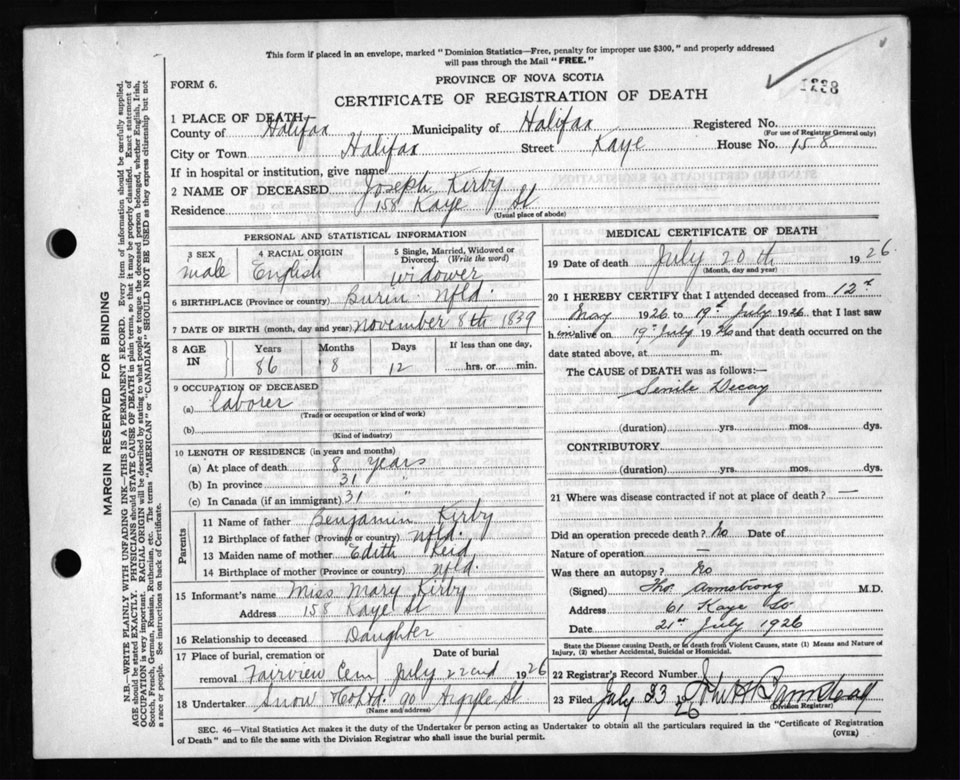 This form if placed in an envelope, marked "Dominion Statistics—Free, penalty for improper use $300," and properly addressed
will pass through the Mail "FREE."
FORM 6.
PROVINCE OF NOVA SCOTIA
CERTIFICATE OF REGISTRATION OF DEATH
1 PLACE OF DEATH
County of Halifax Municipality of Halifax Registered No.
(For use of Registrar General only)
City or Town Halifax Street Kaye House No. 158
If in hospital or institution, give name
2 NAME OF DECEASED Joseph Kirby
Residence 158 Kaye St
(Usual place of abode)
PERSONAL AND STATISTICAL INFORMATION
3 SEX 4 RACIAL ORIGIN 5 Single, Married, Widowed or Divorced. (Write the word)
male English widower
6 BIRTHPLACE (Province or country) Burin Nfld.
7 DATE OF BIRTH (month, day and year) November 8th 1839
8 AGE IN Years Months Days If less than one day,
86 8 12 hrs. or min.
9 OCCUPATION OF DECEASED
(a) laborer
(Trade or occupation or kind of work)
(b)
(Kind of industry)
10 LENGTH OF RESIDENCE (in years and months)
(a) At place of death 8 years
(b) In province 31 "
(c) In Canada (if an immigrant) 31 "
Parents
11 Name of father Benjamin Kirby
12 Birthplace of father (Province or country) Nfld.
13 Maiden name of mother Edith Reid
14 Birthplace of mother (Province or country) Nfld.
15 Informant's name Miss Mary Kirby
Address 158 Kaye St
16 Relationship to deceased Daughter
17 Place of burial, cremation or removal Date of burial
Fairview Cem July 22nd 1926
18 Undertaker Snow & Co Ltd. 90 Argyle St
(Name and address)
MEDICAL CERTIFICATE OF DEATH
19 Date of death July 20th 1926
(Month, day and year)
20 I HEREBY CERTIFY that I attended deceased from 12th
May 1926 to 19th July 1926 that I last saw
him alive on 19th July 1926 and that death occurred on the
date stated above, at m.
The CAUSE of DEATH was as follows:—
Senile Decay
(duration) yrs. mos. dys.
CONTRIBUTORY
(duration) yrs. mos. dys.
21 Where was disease contracted if not at place of death? —
Did an operation precede death? No Date of
Nature of operation —
Was there an autopsy? No
(Signed) Tho. Armstrong M.D.
Address 61 Kaye St
Date 21st July 1926
State the Disease causing Death, or in death from Violent Causes, state (1) Means and Nature of Injury, (2) whether Accidental, Suicidal or Homicidal.
22 Registrar's Record Number
23 Filed July 23 1926
(Division Registrar)
SEC. 46—Vital Statistics Act makes it the duty of the Undertaker or person acting as Undertaker to obtain all the particulars required in the "Certificate of Registration
of Death" and to file the same with the Division Registrar who shall issue the burial permit.
(OVER)
MARGIN RESERVED FOR BINDING
N.B.—WRITE PLAINLY WITH UNFADING INK—THIS IS A PERMANENT RECORD. Every item of information should be carefully supplied.
AGE should be stated EXACTLY. PHYSICIANS should STATE CAUSE OF DEATH in plain terms, so that it may be properly classified. Exact statement of
OCCUPATION is very important. RACIAL ORIGIN will be described by stating to what people or tongue the deceased person belonged, whether English, Irish,
Scotch, French, German, Russian, Ruthenian, etc. The terms "AMERICAN" or "CANADIAN" SHOULD NOT BE USED as they express citizenship but not
a race or people. See instructions on back of Certificate.